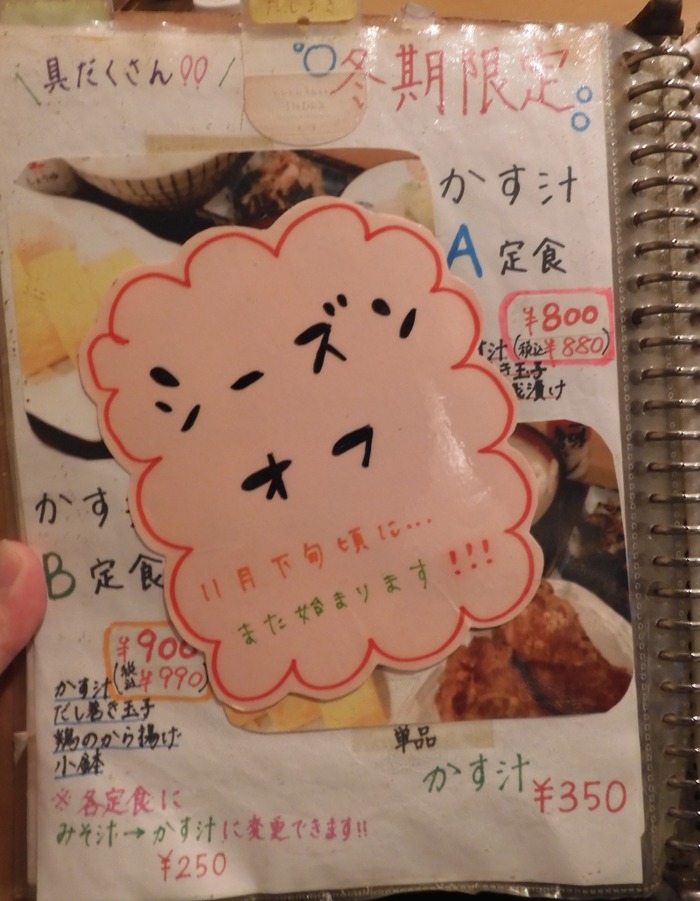 具だくさん!!
冬期限定
かす汁
A定食
¥800
(税込¥880)
汁
き玉子
漬け
シーズン
オフ
11月下旬頃に…
また始まります!!!
かす
B定食
¥900
(税込¥990)
かす汁
だし巻き玉子
鶏のから揚げ
小鉢
単品
かす汁 ¥350
※各定食に
みそ汁→かす汁に変更できます!!
¥250